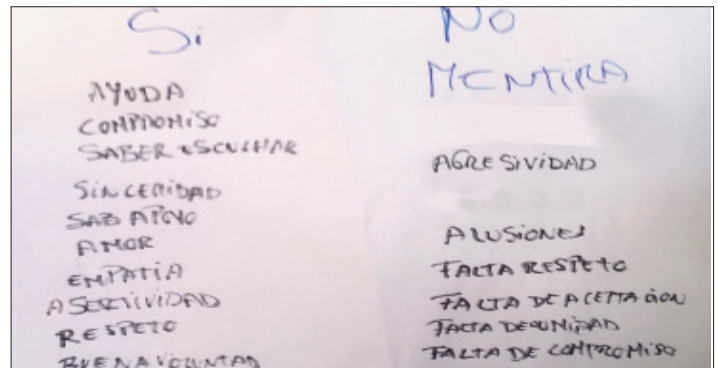 Si
AYUDA
COMPROMISO
SABER ESCUCHAR
SINCERIDAD
SAB APOYO
AMOR
EMPATIA
ASERTIVIDAD
RESPETO
BUENA VOLUNTAD
NO
MENTIRA
AGRESIVIDAD
ALUSIONES
FALTA RESPETO
FALTA DE ACEPTACION
FALTA DE UNIDAD
FALTA DE COMPROMISO